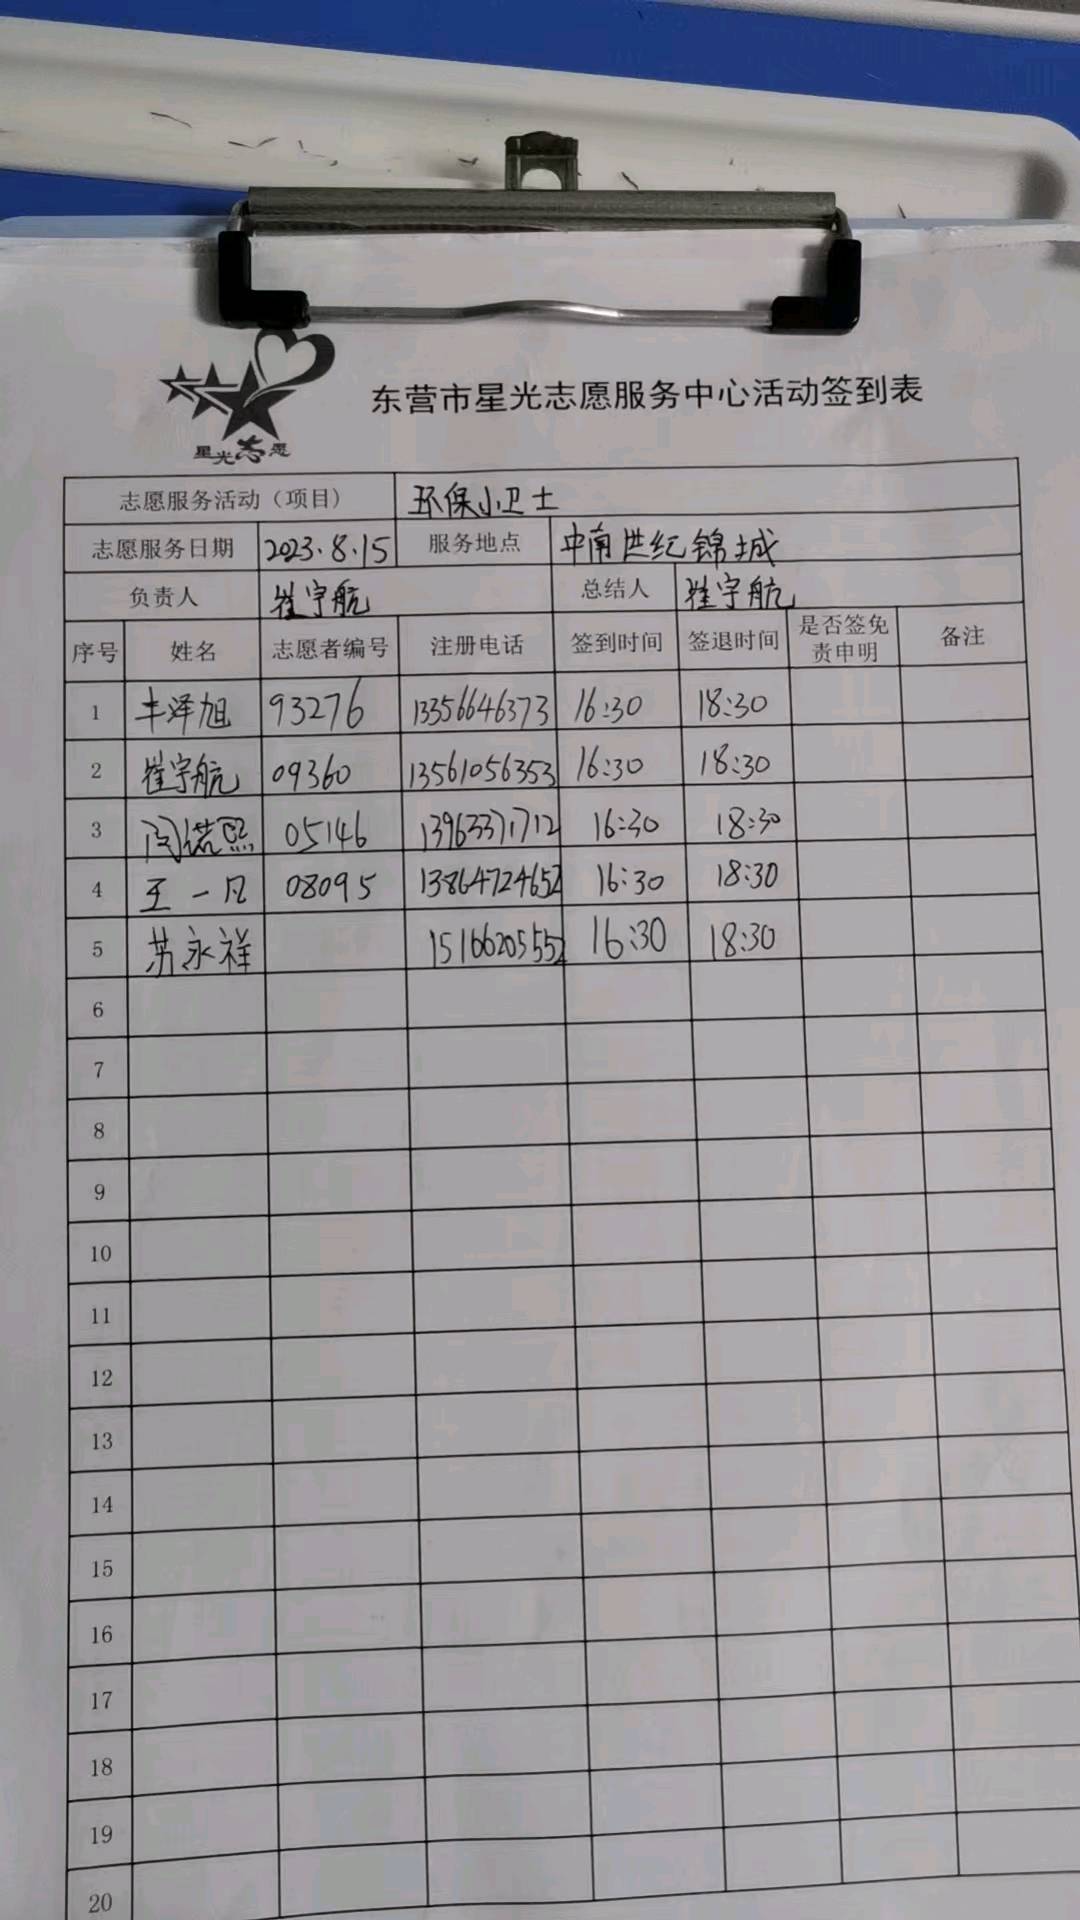 星光志愿
东营市星光志愿服务中心活动签到表
志愿服务活动（项目） 环保小卫士
志愿服务日期 2023.8.15 服务地点 中南世纪锦城
负责人 崔宇航 总结人 崔宇航
序号 姓名 志愿者编号 注册电话 签到时间 签退时间 是否签免责申明 备注
1 丰泽旭 93276 13356646373 16:30 18:30
2 崔宇航 09360 13561056353 16:30 18:30
3 闵诺熙 05146 13963371712 16:30 18:30
4 王一凡 08095 13864724652 16:30 18:30
5 苏永祥 15166205552 16:30 18:30
6
7
8
9
10
11
12
13
14
15
16
17
18
19
20